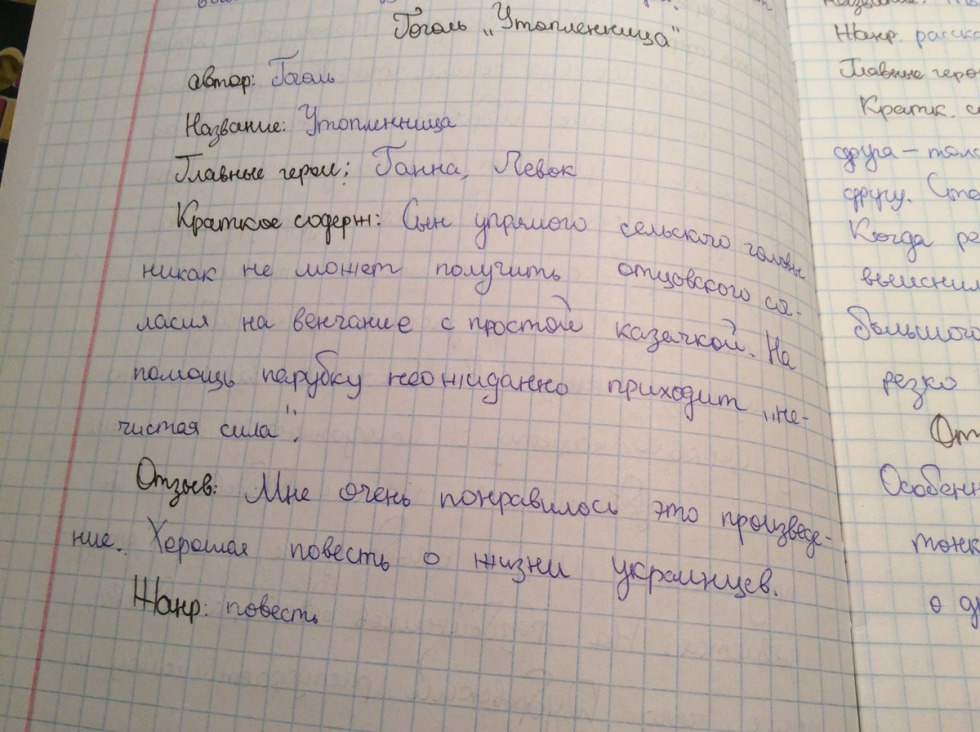 Гоголь „Утопленница"
автор: Гоголь
Название: Утопленница
Главные герои: Ганна, Левок
Краткое содерж: Сын упрямого сельского головы
никак не может получить отцовского со-
ласия на венчание с простой казачкой. На
помощь парубку неожиданно приходит „не-
чистая сила".
Отзыв: Мне очень понравилось это произведе-
ние. Хорошая повесть о жизни украинцев.
Жанр: повесть
Жанр. расска
Главные геро
Кратк. с
друга – тол
другу.
Когда ре
выяснил
большого
резко
От
Особенн
тонк
о д